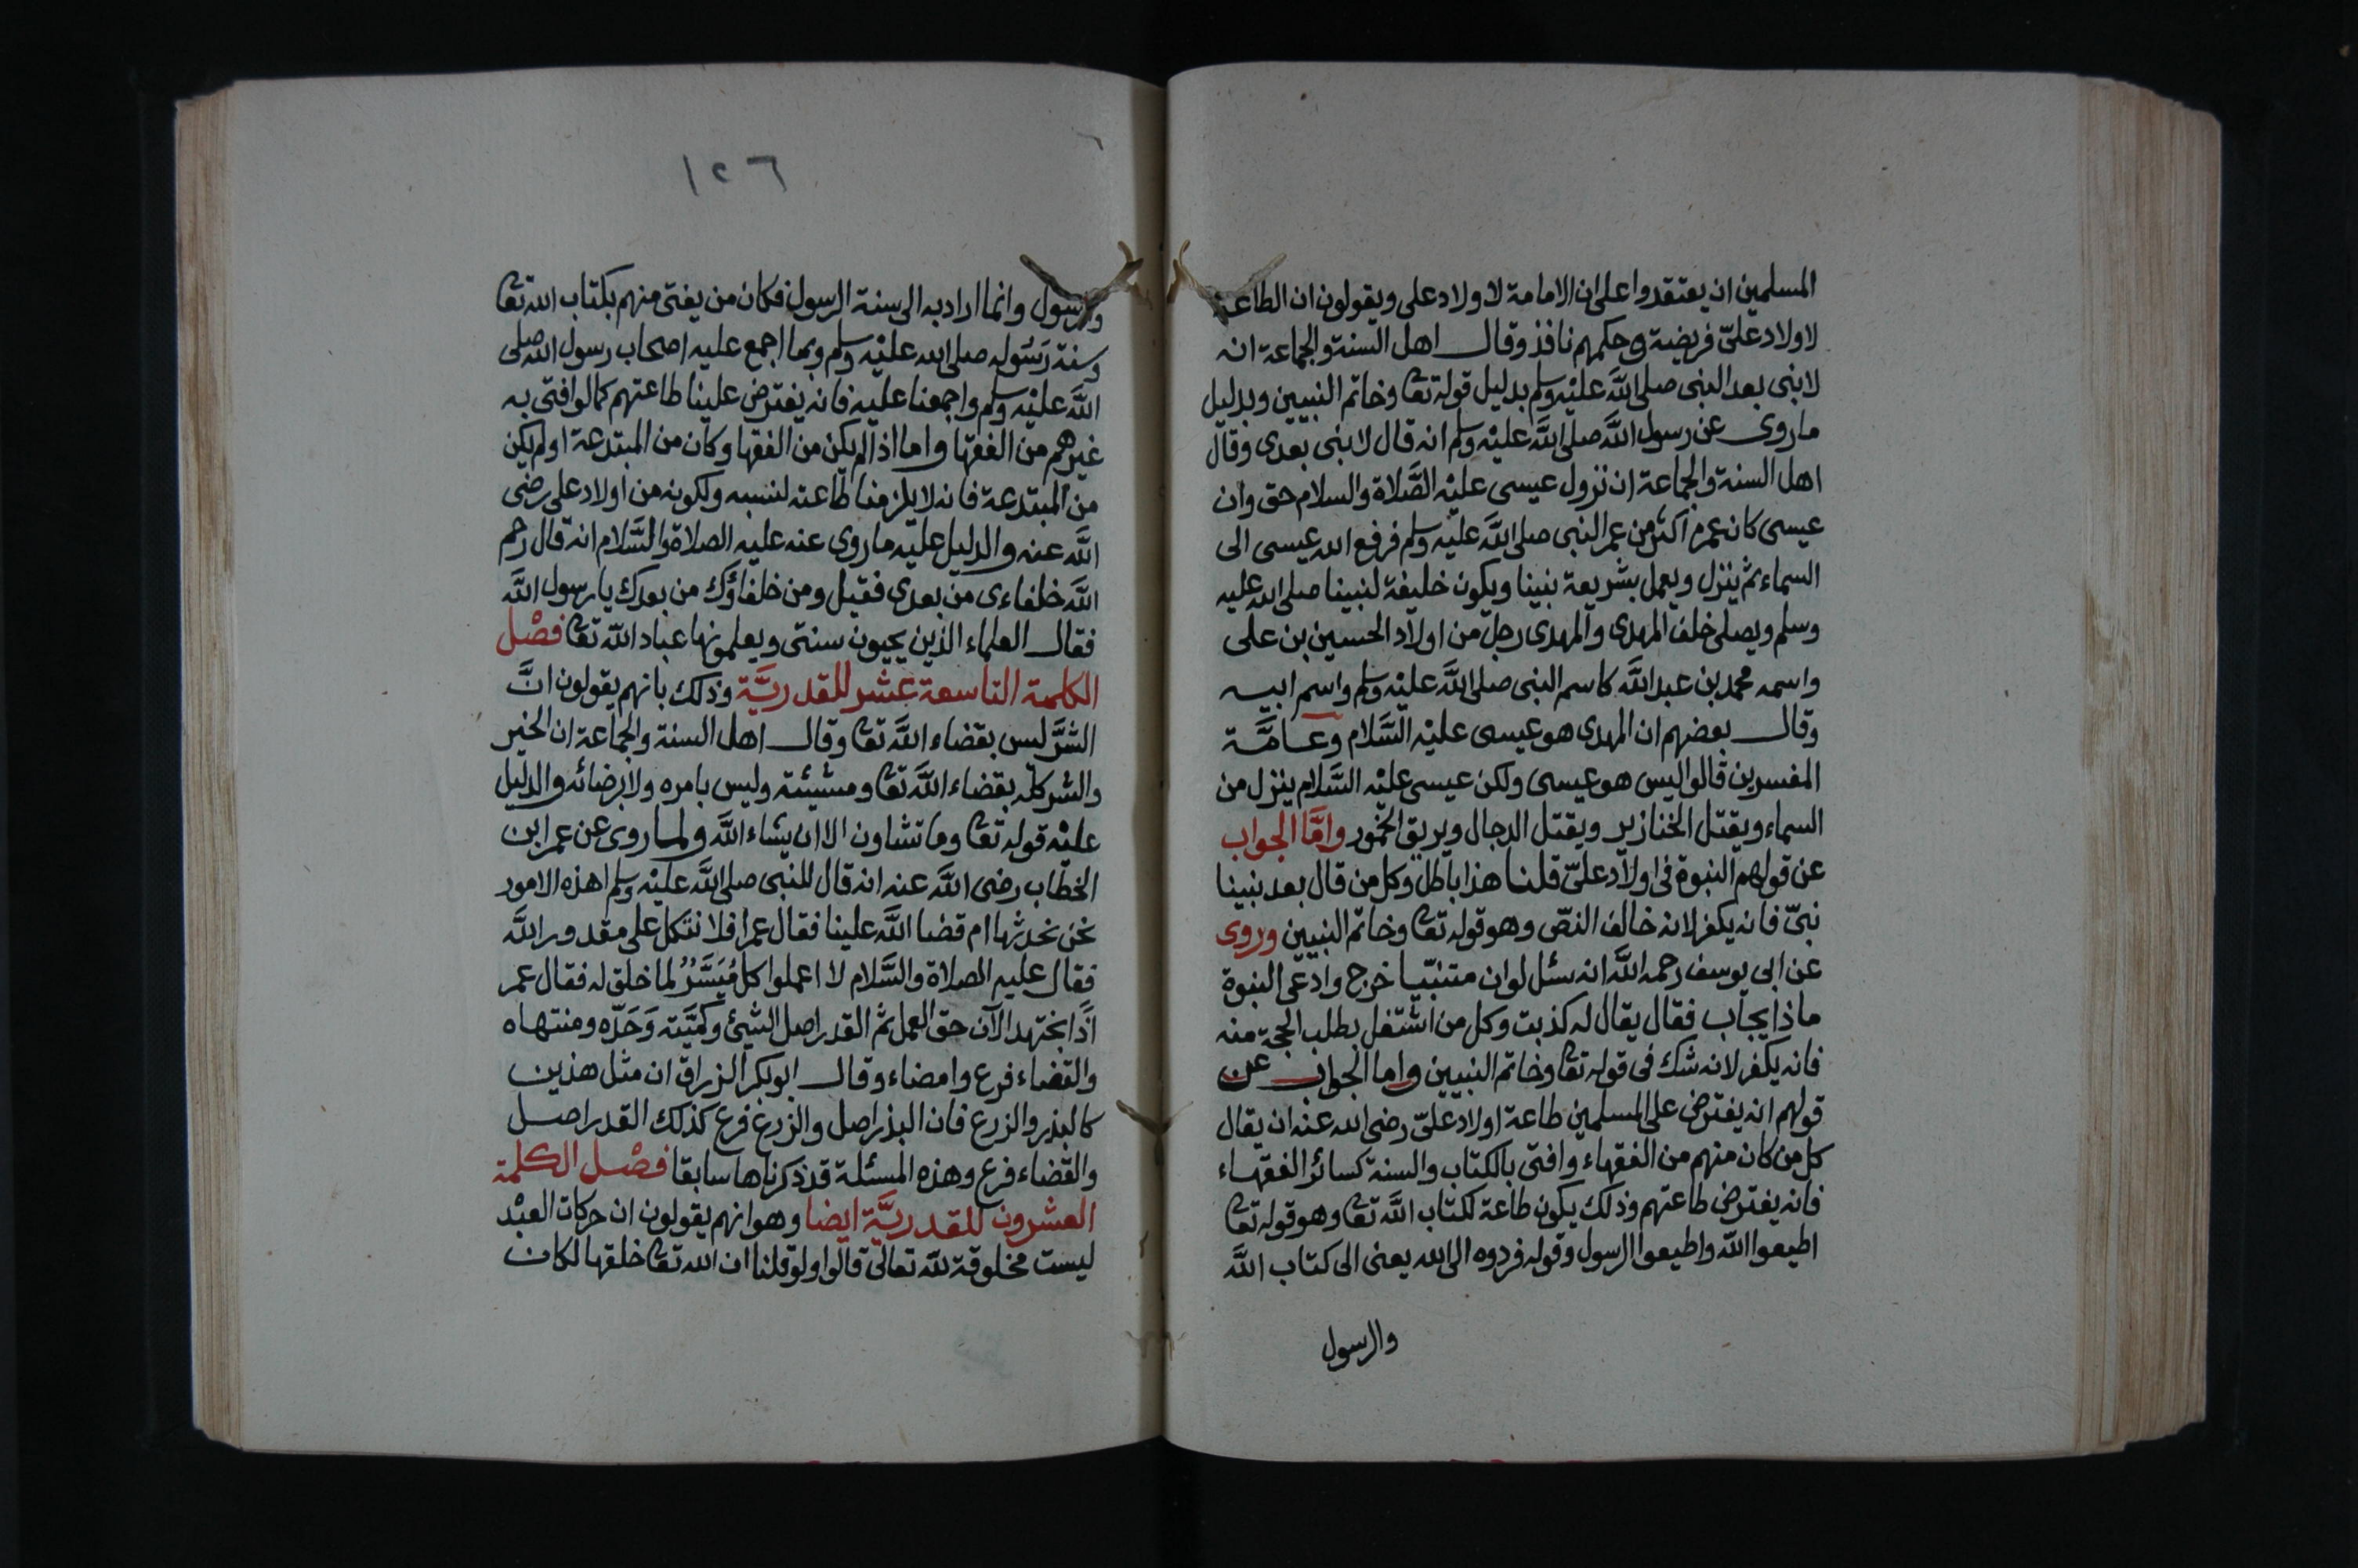 المسلمين ان يعتقدوا على ان الامامة لاولاد على ويقولون ان الطاعة
لاولاد علىّ فريضة وحكمهم نافذ وقال اهل السنة والجماعة انه
لا نبى بعد النبى صلى اللَّه عليْه وسلم بدليل قوله تعا وخاتم النبيين وبدليل
ما روى عن رسول اللَّه صلى اللَّه عليْه وسلم انه قال لا نبى بعدى وقال
اهل السنة والجماعة ان نزول عيسى عليْه الصَّلاة والسلام حق وان
عيسى كان عمره اكثر من عمر النبى صلى اللَّه عليْه وسلم فرفع الله عيسى الى
السماء ثم ينزل ويعمل بشريعة نبينا ويكون خليفة لنبينا صلى الله عليه
وسلم ويصلى خلف المهدى والمهدى رجل من اولاد الحسين بن على
واسمه محمد بن عبد اللَّه كاسم النبى صلى اللَّه عليْه وسلم واسم ابيه
وقال بعضهم ان المهدى هو عيسى عليْه السَّلام وعامَّة
المفسرين قالوا ليس هو عيسى ولكن عيسى عليْه السَّلام ينزل من
السماء ويقتل الخنازير ويقتل الدجال ويريق الخمور وامَّا الجواب
عن قولهم النبوة فى اولاد علىّ قلنا هذا باطل وكل من قال بعد نبينا
نبىّ فانه يكفر لانه خالف النصّ وهو قوله تعا وخاتم النبيين وروى
عن ابى يوسف رحمه اللَّه انه سئل لو ان متنبّيا خرج وادعى النبوة
ماذا يجاب فقال يقال له كذبت وكل من اشتغل بطلب الحجة منه
فانه يكفر لانه شك فى قوله تعا وخاتم النبيين واما الجواب عن
قولهم انه يفترض على المسلمين طاعة اولاد علىّ رضى الله عنه ان يقال
كل من كان منهم من الفقهاء وافتى بالكتاب والسنة كسائر الفقهاء
فانه يفترض طاعتهم وذلك يكون طاعة لكتاب اللَّه تعا وهو قوله تعا
اطيعوا اللّه واطيعوا الرسول وقوله فردوه الى الله يعنى الى كتاب اللَّه
والرسول
١٢٦
والرسول وانما اراد به الى سنة الرسول فكان من يفتى منهم بكتاب الله تعا
وسنة رَسُوله صلى الله عليْه وسلم وبما اجمع عليه اصحاب رسول الله صلى
اللَّه عليْه وسلم واجمعنا عليه فانه يفترض علينا طاعتهم كما لو افتى به
غيرهم من الفقها واما اذا لم يكن من الفقها وكان من المبتدعة او لم يكن
من المبتدعة فانه لا يلزمنا طاعته لنسبه ولكونه من اولاد على رضى
اللَّه عنه والدليل عليه ما روى عنه عليه الصلاة والسَّلام انه قال رحم
اللَّه خلفاءى من بعدى فقيل ومن خلفاؤك من بعدك يا رسول اللَّه
فقال العلماء الذين يحيون سنتى ويعلمونها عباد اللّه تعا فصْل
الكلمة التاسعة عشر للقدريَّة وذلك بانهم يقولون انَّ
الشرَّ ليس بقضاء اللَّه تعا وقال اهل السنة والجماعة ان الخير
والشر كلّه بقضاء اللَّه تعا ومشيئته وليس بامره ولا برضائه والدليل
عليْه قوله تعا وما تشاون الا ان يشاء اللَّه ولما روى عن عمر ابن
الخطاب رضى اللَّه عنه انه قال للنبى صلى اللَّه عليْه وسلم اهذه الامور
نحن نحدثها ام قضا اللَّه علينا فقال عمر افلا نتكل على مقدور اللَّه
فقال عليه الصلاة والسَّلام لا اعملوا كل مُيَسَّرٌ لما خلق له فقال عمر
اذًا نجتهد الآن حق العمل ثم القدر اصل الشيئ وكمّيَّته وَحَدّه ومنتهاه
والقضاء فرع وامضاء وقال ابو بكر الزراق ان مثل هذين
كالبذر والزرع فان البذر اصل والزرع فرع كذلك القدر اصل
والقضاء فرع وهذه المسئلة قد ذكرناها سابقا فصْل الكلمة
العشرون للقدريَّة ايضا وهو انهم يقولون ان حركات العبْد
ليست مخلوقة للّه تعالى قالوا ولو قلنا ان الله تعا خلقها لكان